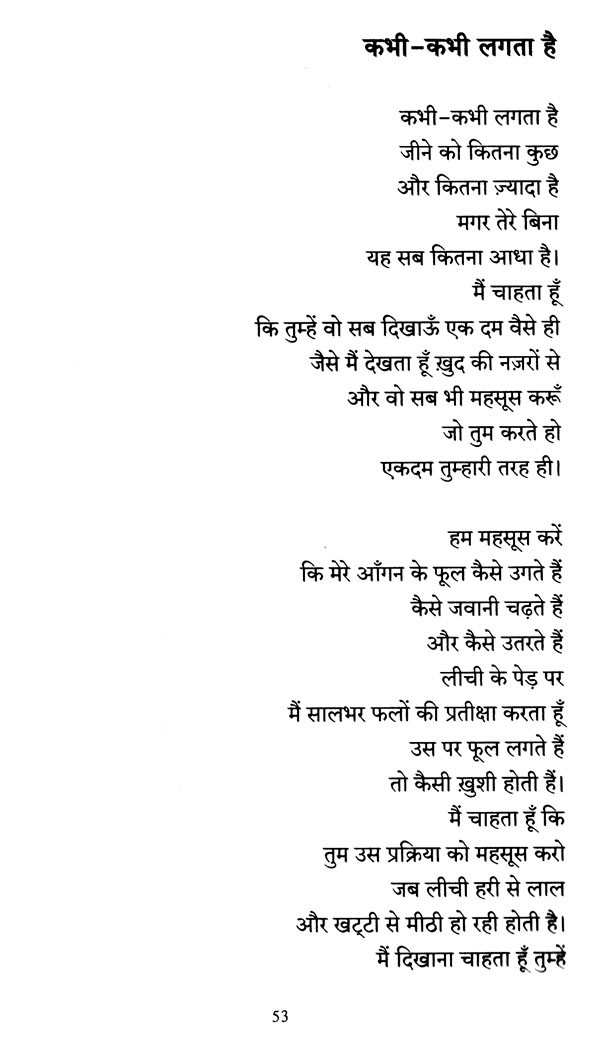 कभी-कभी लगता है
कभी-कभी लगता है
जीने को कितना कुछ
और कितना ज़्यादा है
मगर तेरे बिना
यह सब कितना आधा है।
मैं चाहता हूँ
कि तुम्हें वो सब दिखाऊँ एक दम वैसे ही
जैसे मैं देखता हूँ ख़ुद की नज़रों से
और वो सब भी महसूस करूँ
जो तुम करते हो
एकदम तुम्हारी तरह ही।
हम महसूस करें
कि मेरे आँगन के फूल कैसे उगते हैं
कैसे जवानी चढ़ते हैं
और कैसे उतरते हैं
लीची के पेड़ पर
मैं सालभर फलों की प्रतीक्षा करता हूँ
उस पर फूल लगते हैं
तो कैसी ख़ुशी होती हैं।
मैं चाहता हूँ कि
तुम उस प्रक्रिया को महसूस करो
जब लीची हरी से लाल
और खट्टी से मीठी हो रही होती है।
मैं दिखाना चाहता हूँ तुम्हें
53